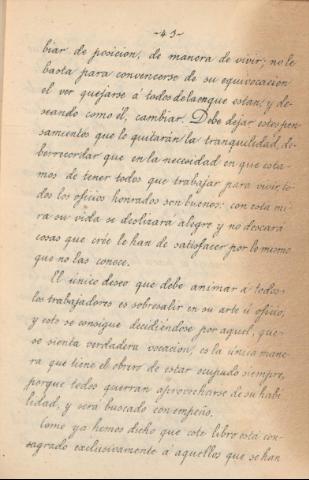 -43-
biar de posicion, de manera de vivir; no le
basta para convencerse de su equivocacion
el ver quejarse á todos de la en que estan, y de-
seando como él, cambiar. Debe dejar estos pen-
samientos que le quitarán la tranquilidad, de-
be recordar que en la necesidad en que esta-
mos de tener todos que trabajar para vivir, to-
dos los oficios honrados son buenos: con esta mi-
ra su vida se deslizará alegre y no deseará
cosas que crée le han de satisfacer por lo mismo
que no las conoce.
El único deseo que debe animar á todos
los trabajadores es sobresalir en su arte ú oficio,
y esto se consigue decidiéndose por aquel, que
se sienta verdadera vocacion, es la única mane-
ra que tiene el obrero de estar ocupado siempre,
porque todos querran aprovecharse de su habi-
lidad, y será buscado con empeño.
Como ya hemos dicho que este libro está con-
sagrado exclusivamente á aquellos que se han